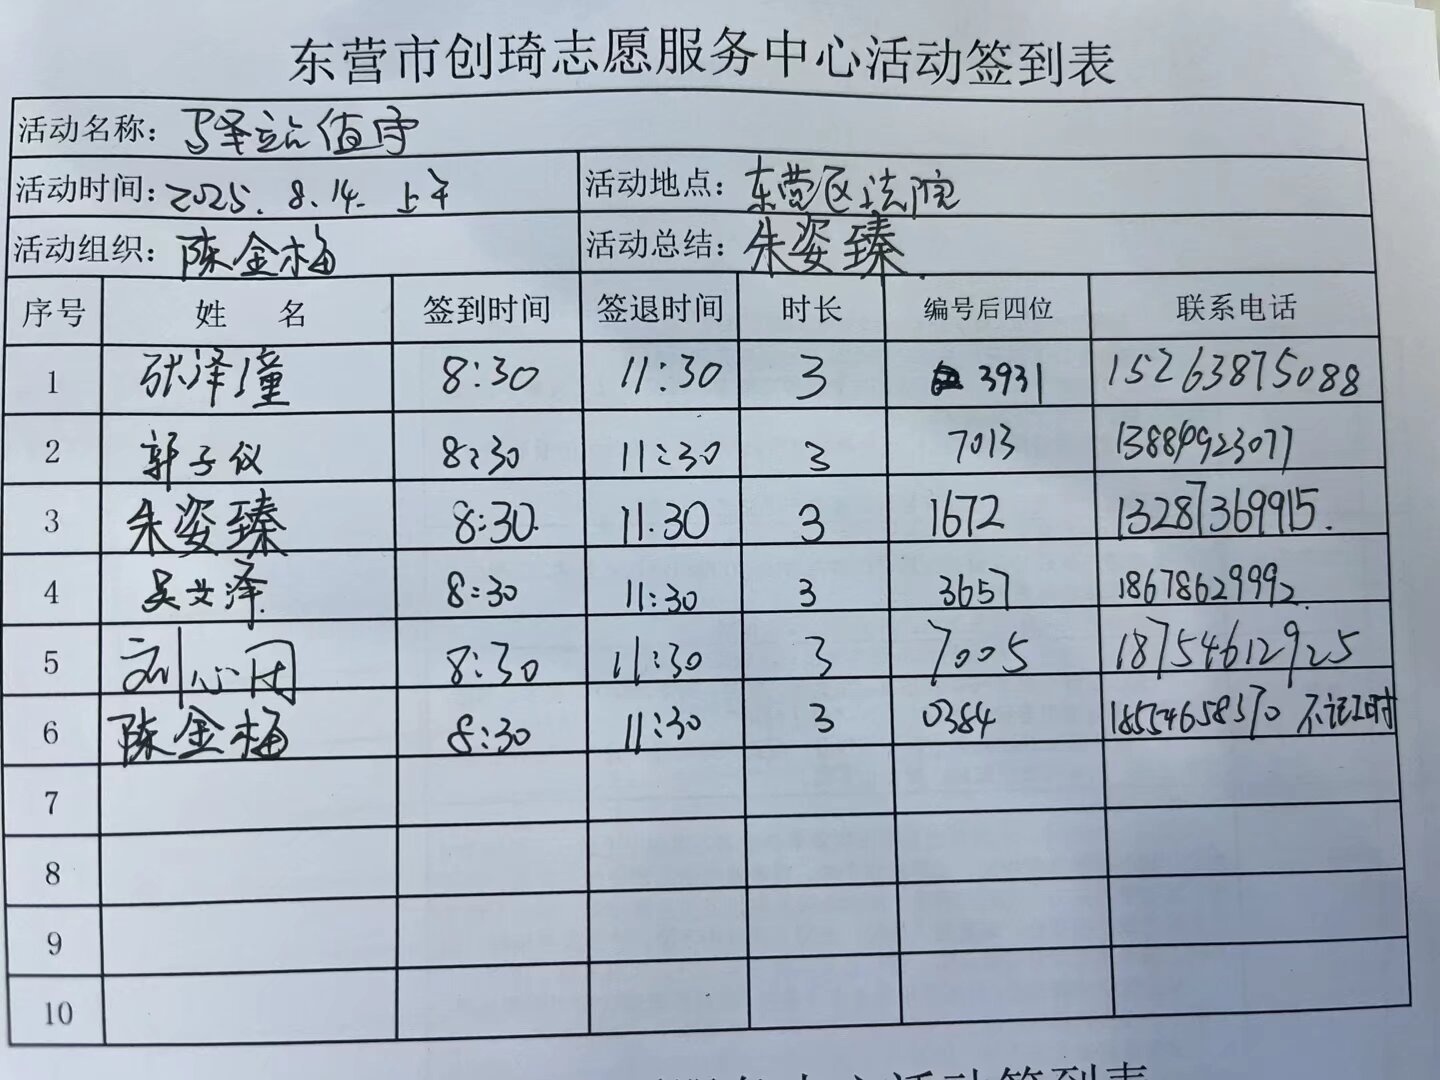 东营市创琦志愿服务中心活动签到表
活动名称：驿站值守
活动时间：2025.8.14.上午 活动地点：东营区法院
活动组织：陈金梅 活动总结：朱姿臻.
序号 姓名 签到时间 签退时间 时长 编号后四位 联系电话
1 张泽潼 8:30 11:30 3 3931 15263875088
2 郭子仪 8:30 11:30 3 7013 13884923077
3 朱姿臻 8:30. 11.30 3 1672 13287369915.
4 吴文泽. 8:30 11:30 3 3657 18678629992.
5 刘心 8:30 11:30 3 7005 18754612925
6 陈金梅 8:30 11:30 3 0384 18554658370 不记工时
7
8
9
10
中心活动签到表